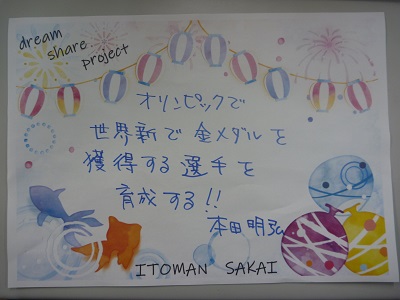 dream
share
project
オリンピックで
世界新で金メダルを
獲得する選手を
育成する!!
本田明弘
ITOMAN SAKAI